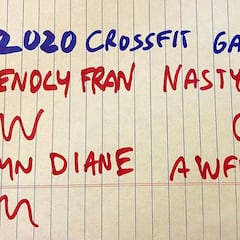 2020 CROSSFIT GA
ENDLY FRAN NASTY
MN DIANE AWF